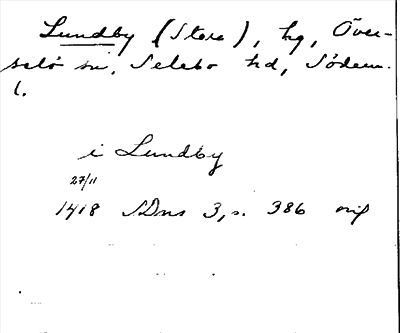 Lundby (Stora), hg, Över-
selö sn, Selebo hd, Söderm.
l.
i Lundby
27/11
1418 SDns 3, s. 386 orig